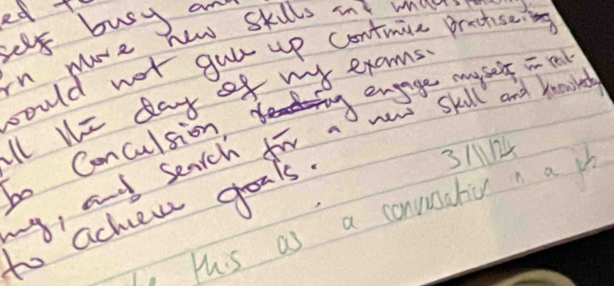 self busy and
more new skills and
would not give up continue practise
the day of my exams.
conculsion, engage myself in real
and search for a new skill and knowledge
to achieve goals.
3/11/24
this as a conversation in a